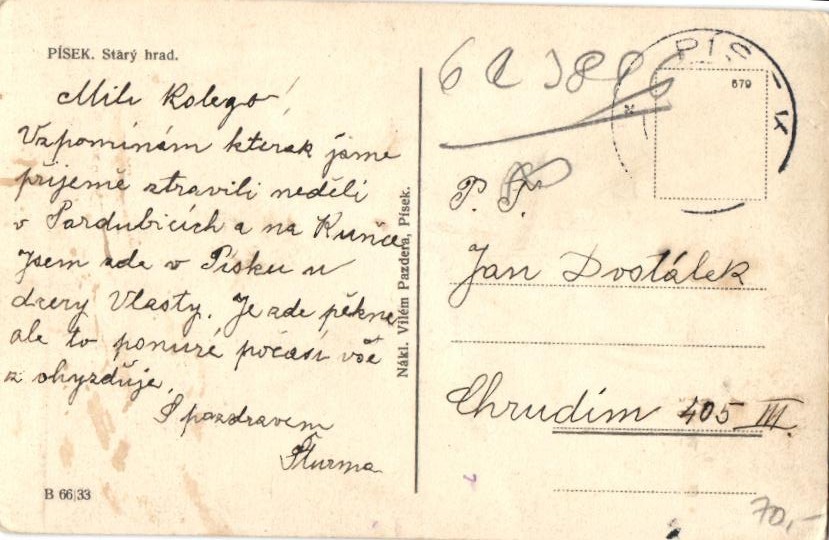 PÍSEK. Starý hrad.
Milý Kolego!
Vzpomínám kterak jsme
příjemě ztravili neděli
v Pardubicích a na Kuňce
Jsem zde v Písku u
dcery Vlasty. Je zde pěkne
ale to ponuré počasí vše
z ohyzduje.
S pozdravem
Šturma
B 66|33
Nákl. Vilém Pazdera, Písek.
PÍS IX
679
P. T.
Jan Dostálek
Chrudim 405 III.
70,-